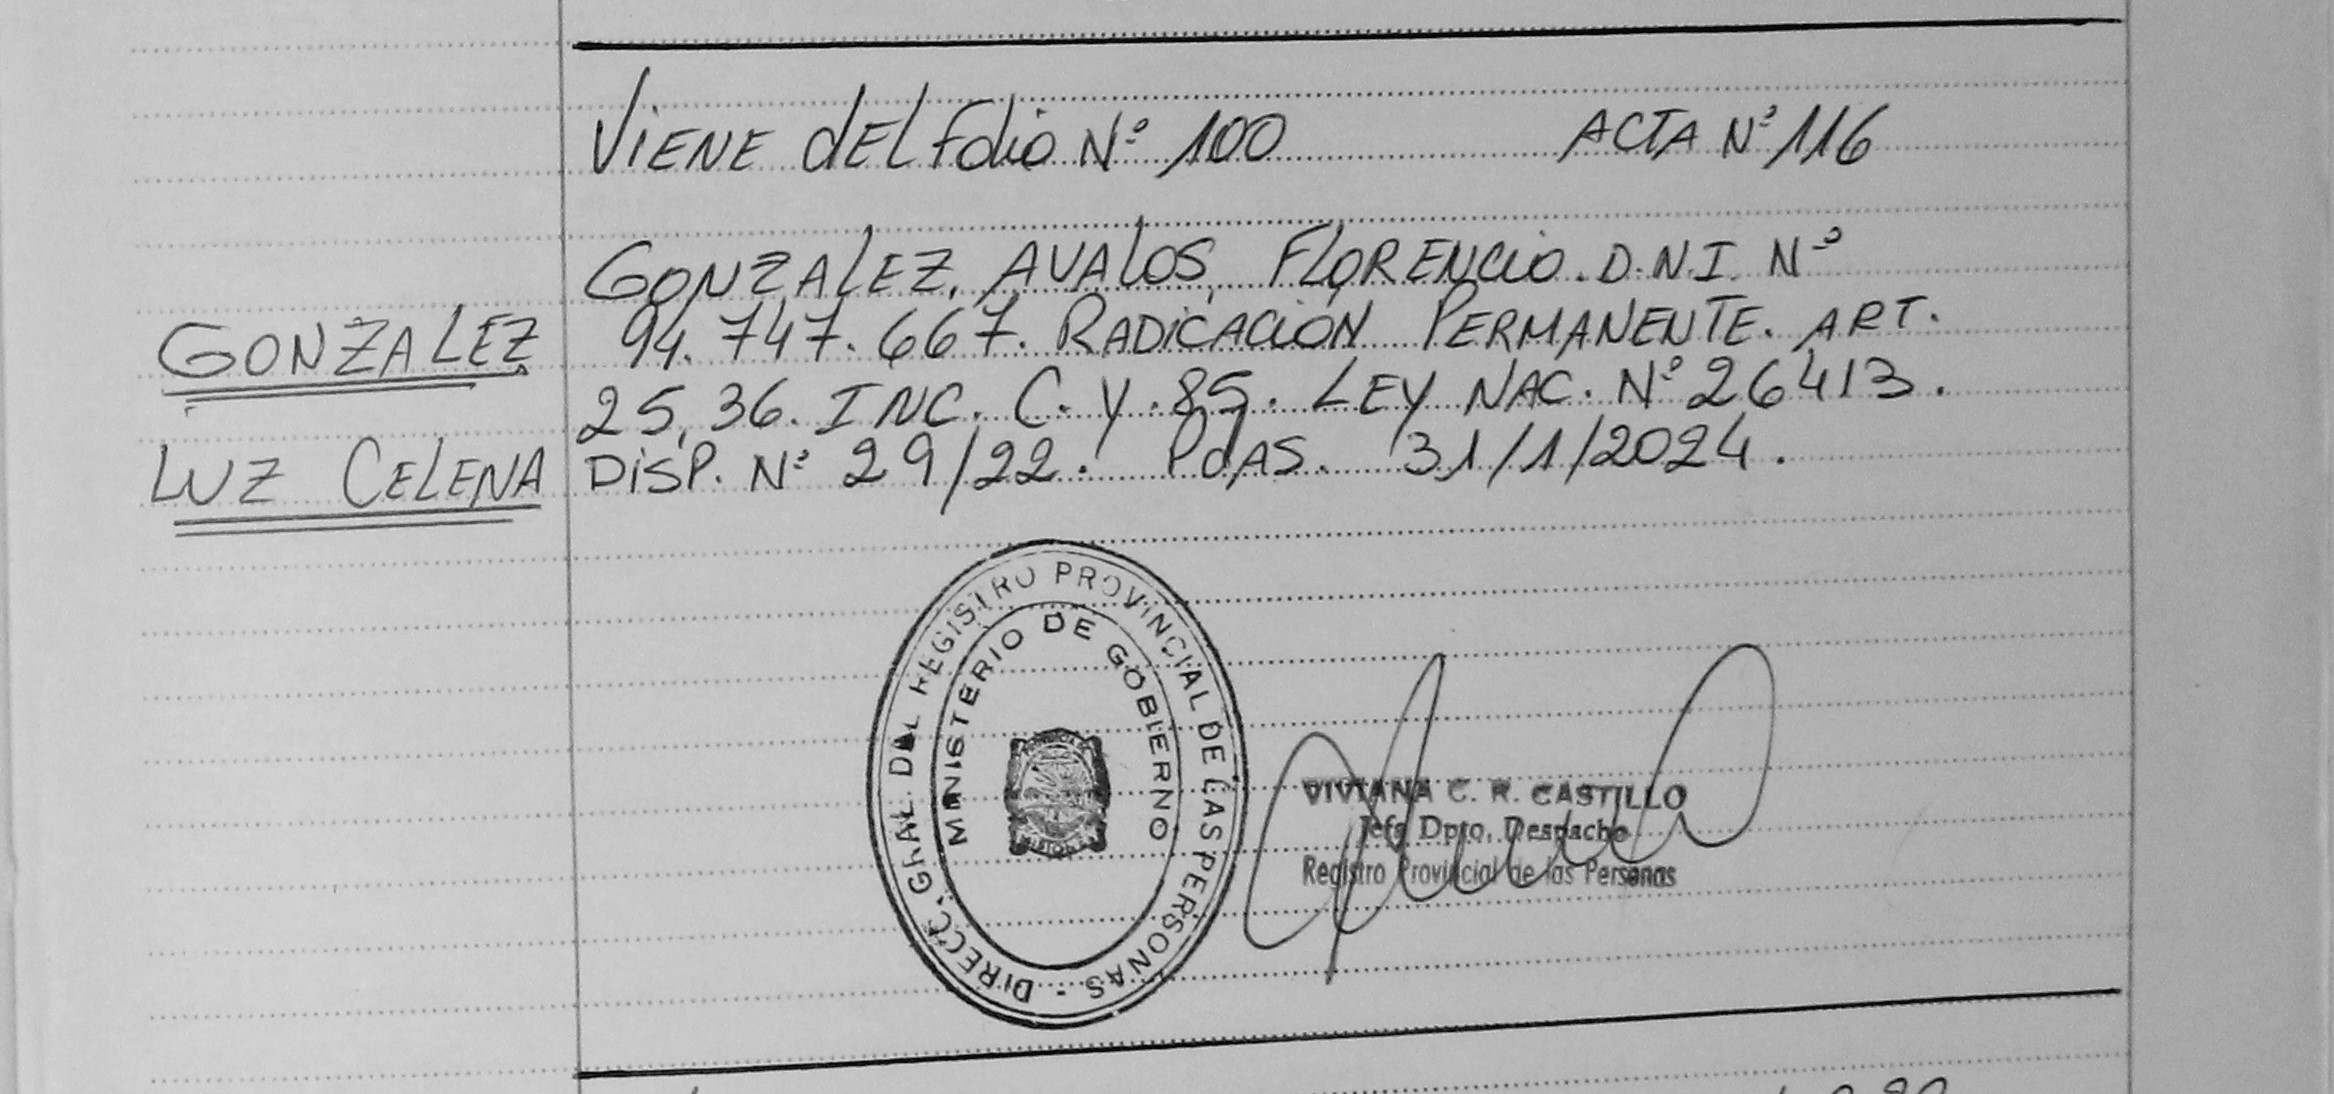 VIENE dEL Folio Nº 100 ACTA Nº 116
GONZALEZ, AVALOS, FLORENCIO. D.N.I. Nº
GONZALEZ
94.747.667. RADICACIÓN PERMANENTE. ART.
25,36. INC. C. Y .85. LEY NAC. Nº 26413.
LUZ CELENA
DISP. Nº 29/22. PdAS. 31/1/2024.
DIRECC. GRAL. DEL REGISTRO PROVINCIAL DE LAS PERSONAS -
MINISTERIO DE GOBIERNO
VIVIANA C. R. CASTILLO
Jefa Dpto. Despacho
Registro Provincial de las Personas